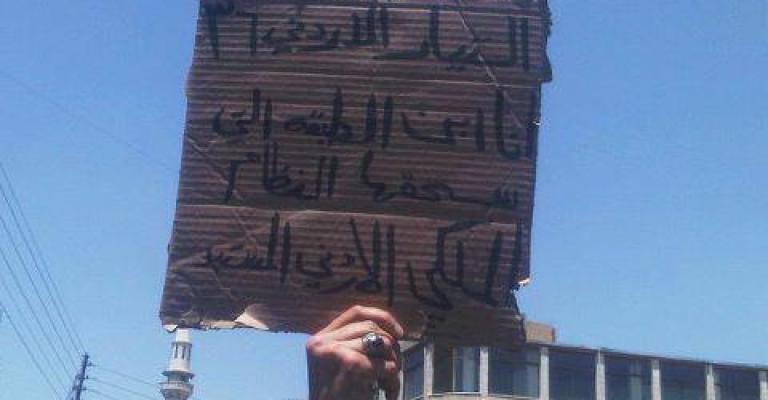 التيار الاردني ٣٦
انا ابن الطبقه التي
سحقها النظام
الملكي الأردني المستبد